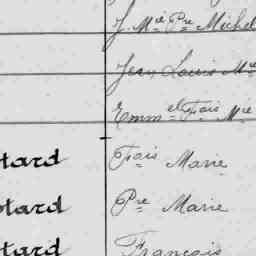 J. Mie Pre Michel
Jean Louis Mie
Emmel Fois Mie
tard Fois Marie
tard Pre Marie
tard François